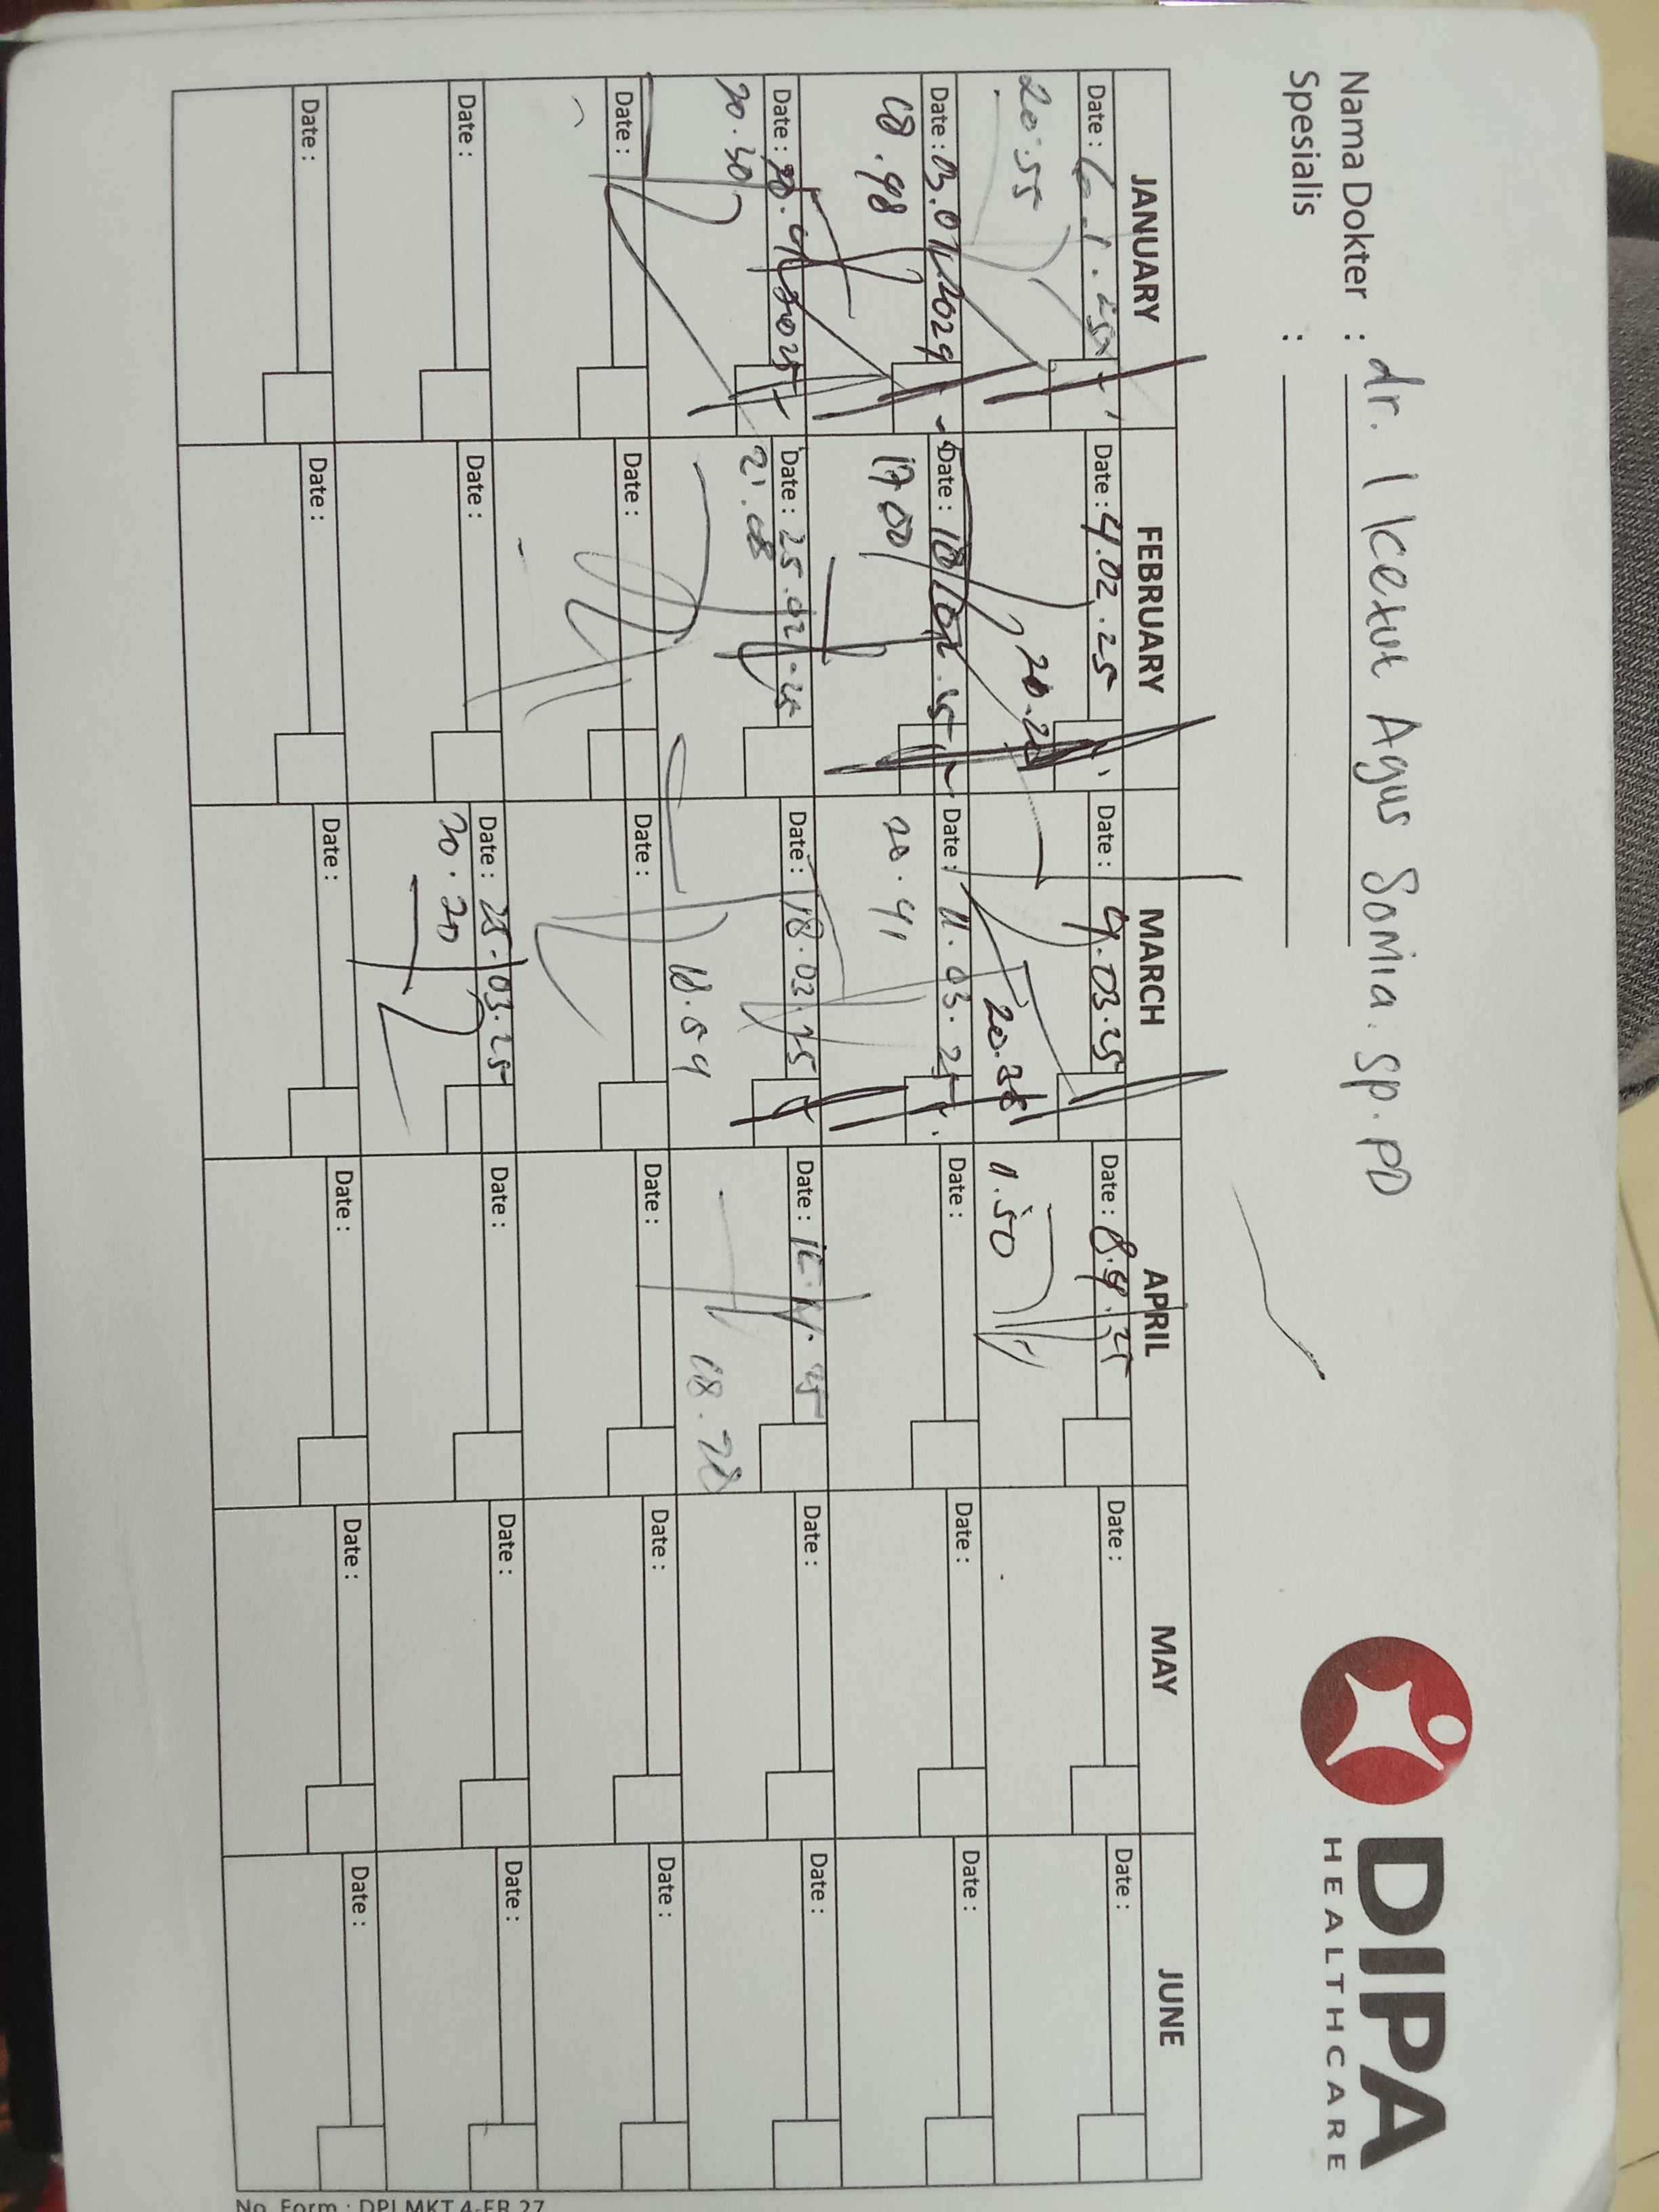 DIPA
HEALTHCARE
Nama Dokter : dr. I Ketut Agus Somia. Sp. PD
Spesialis :
JANUARY FEBRUARY MARCH APRIL MAY JUNE
Date : 6.1.25 Date : 4.02.25 Date : 4.03.25 Date : 8.4.25 Date : Date :
20:55 20.2 20.38 11.50
Date : 03.01/2029 Date : 18/02.25 Date : 11.03.25 Date : Date : Date :
18.48 17 00 20.41
Date : 20.01/2025 Date : 25.02.25 Date : 18.03.25 Date : Date : Date :
20.30 21.08 18.54 18.28
Date : Date : Date : Date : Date : Date :
Date : Date : Date : 25.03.25 Date : Date : Date :
20.20
Date : Date : Date : Date : Date : Date :
No. Form : DPI.MKT.4-FR.27